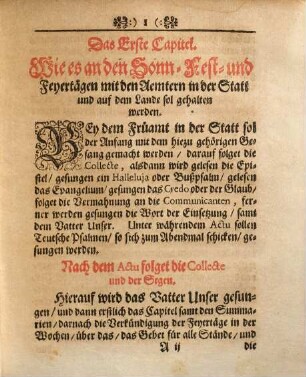 1
Das Erste Capitel.
Wie es an den Sonn-Fest- und
Feyertägen mit den Aemtern in der Statt
und auf dem Lande sol gehalten
werden.
BEy dem Frůamt in der Statt sol
der Anfang mit dem hiezu gehörigen Ge-
sang gemacht werden / darauf folget die
Collecte, alsdann wird gelesen die Epi-
stel / gesungen ein Halleluja oder Bußpsalm / gelesen
das Evangelium / gesungen das Credo oder der Glaub /
folget die Vermahnung an die Communicanten, fer-
ner werden gesungen die Wort der Einsetzung / samt
dem Vatter Unser. Unter währendem Actu sollen
Teutsche Psalmen / so sich zum Abendmal schicken / ge-
sungen werden.
Nach dem Actu folget die Collecte
und der Segen.
Hierauf wird das Vatter Unser gesun-
gen / und dann erstlich das Capitel samt den Summa-
rien / darnach die Verkündigung der Feyertäge in der
Wochen / über das / das Gebet für alle Stände / und
A ij die